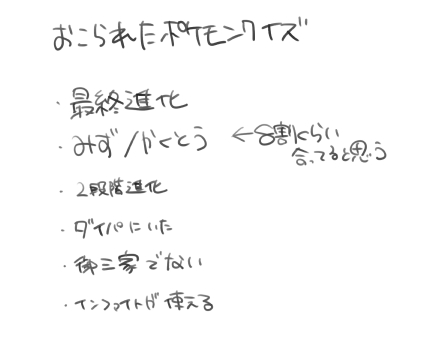 おこられたポケモンクイズ
・最終進化
・みず/かくとう ←8割くらい
合ってると思う
・2段階進化
・ダイパにいた
・御三家でない
・インファイトが使える